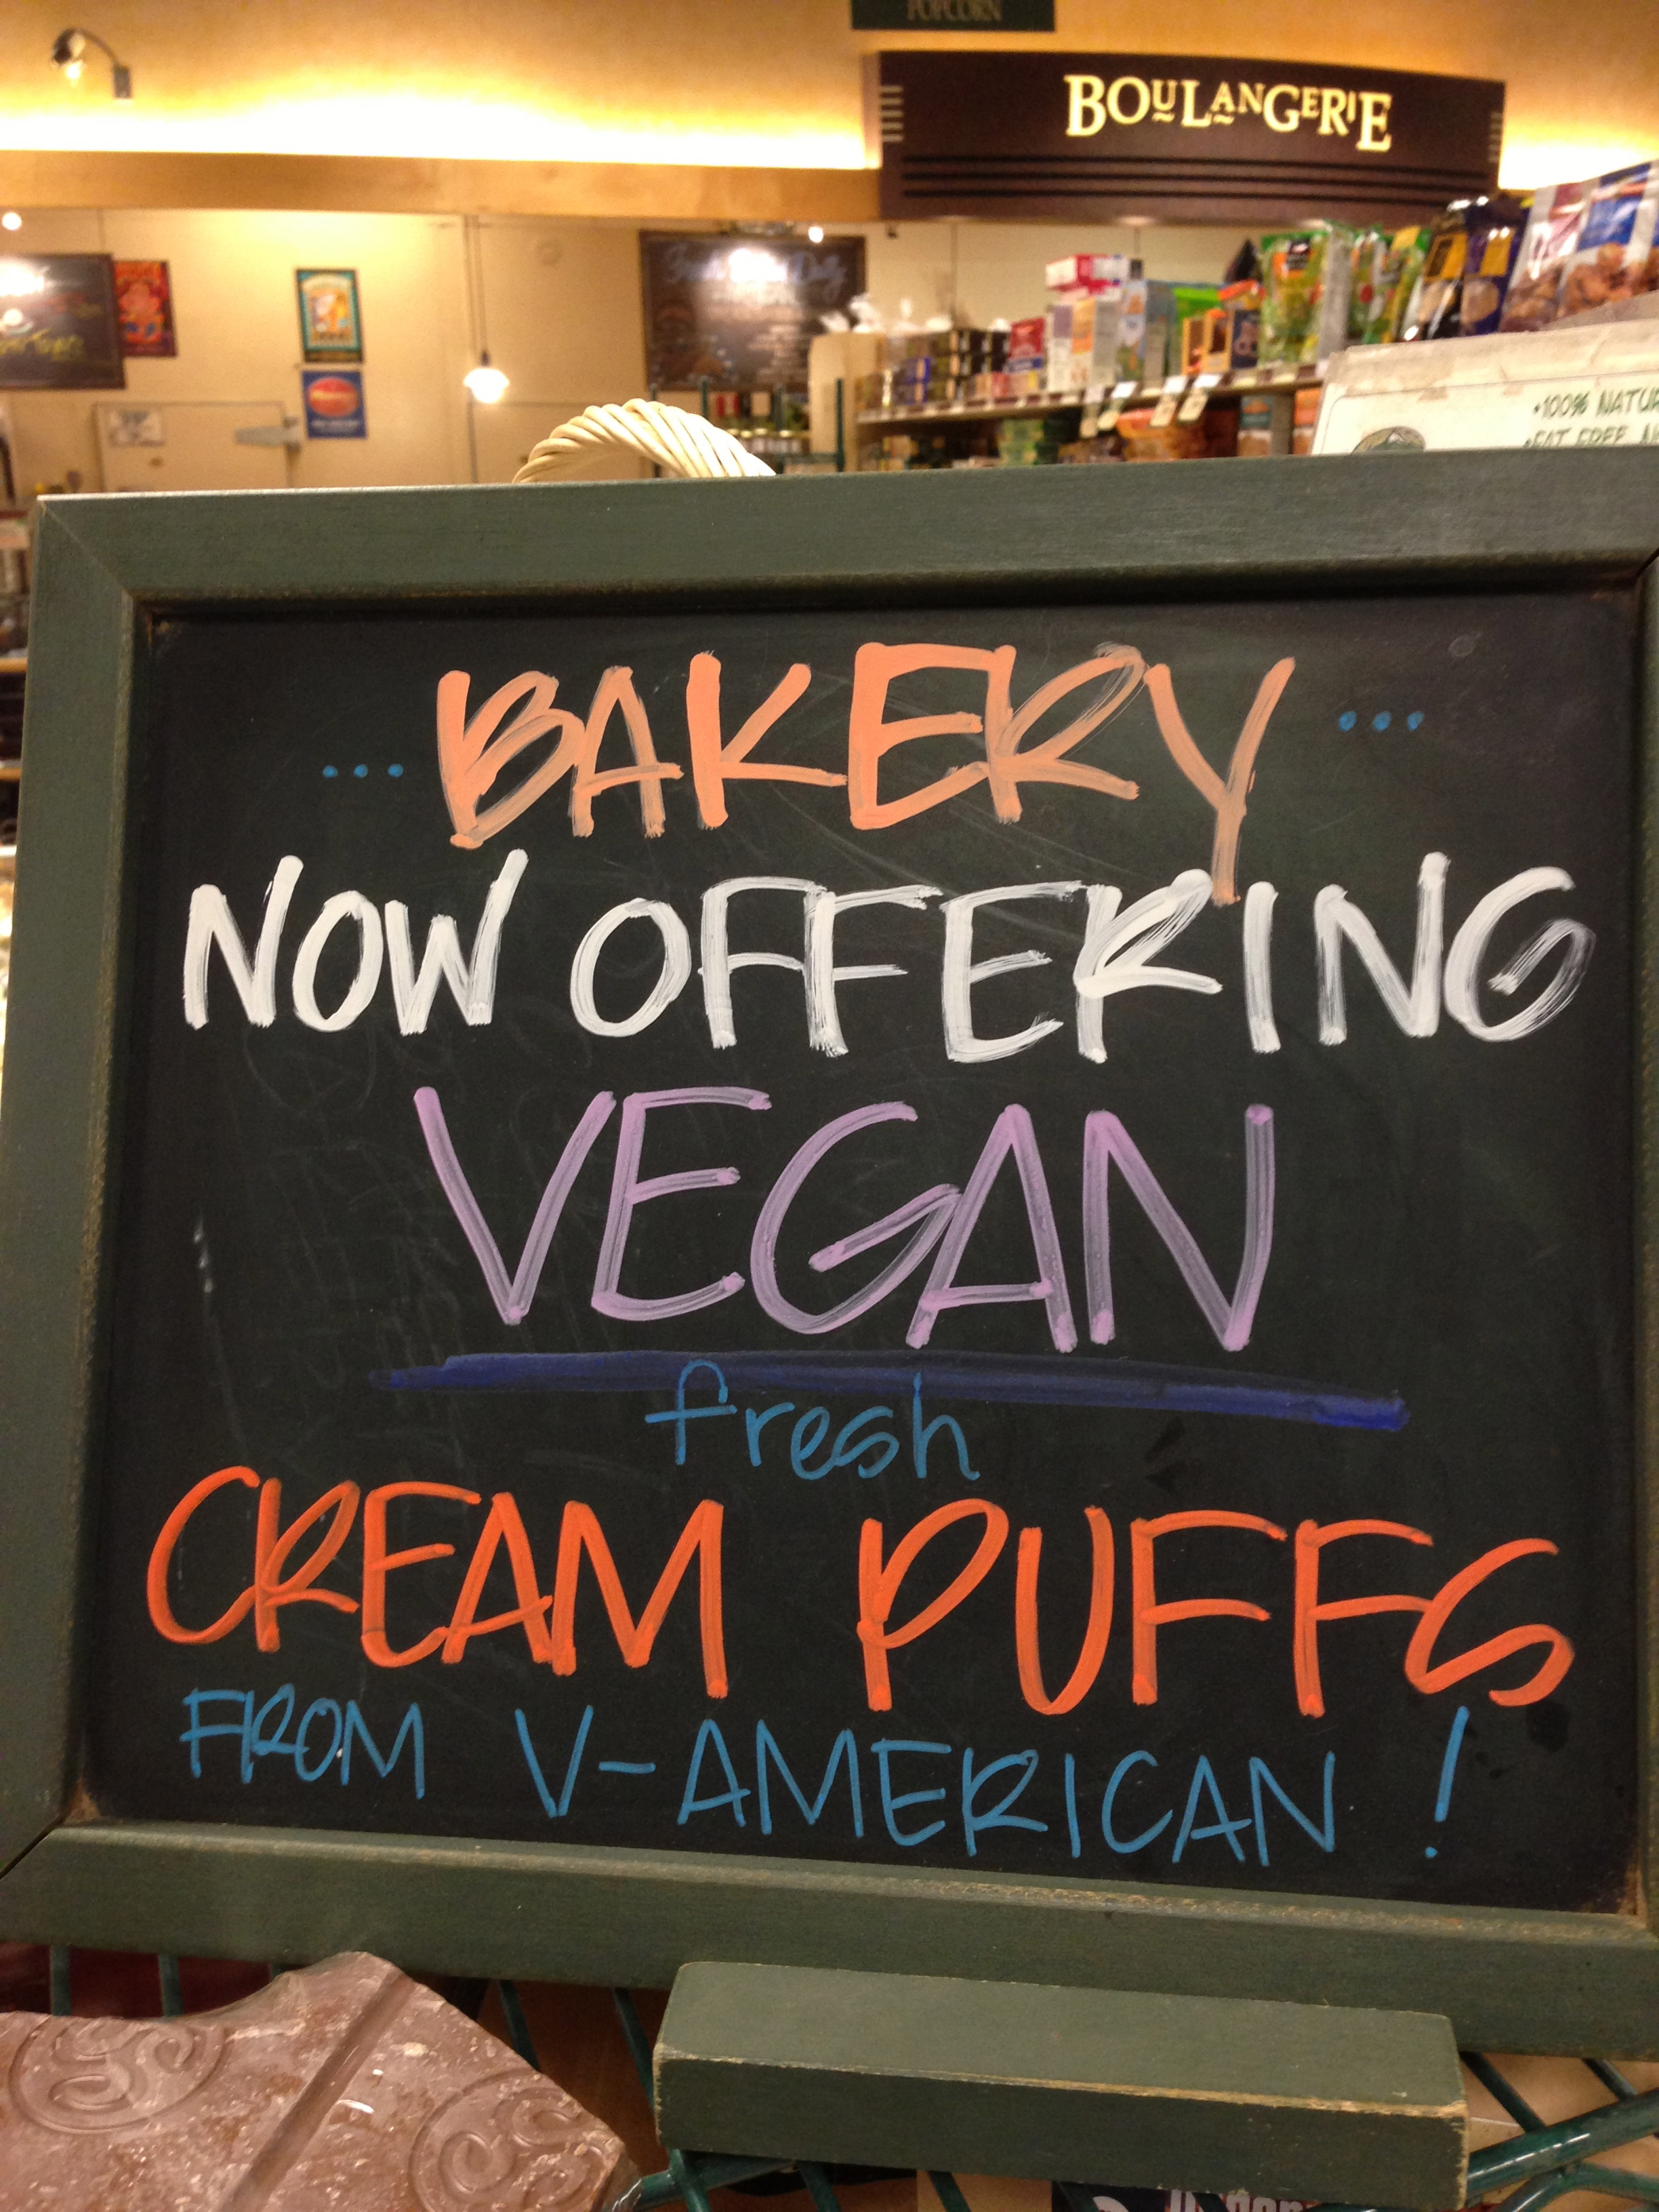 POPCORN
BOULANGERIE
•100% NATUR
•FAT FREE
... BAKERY ...
NOW OFFERING
VEGAN
fresh
CREAM PUFFS
FROM V-AMERICAN !